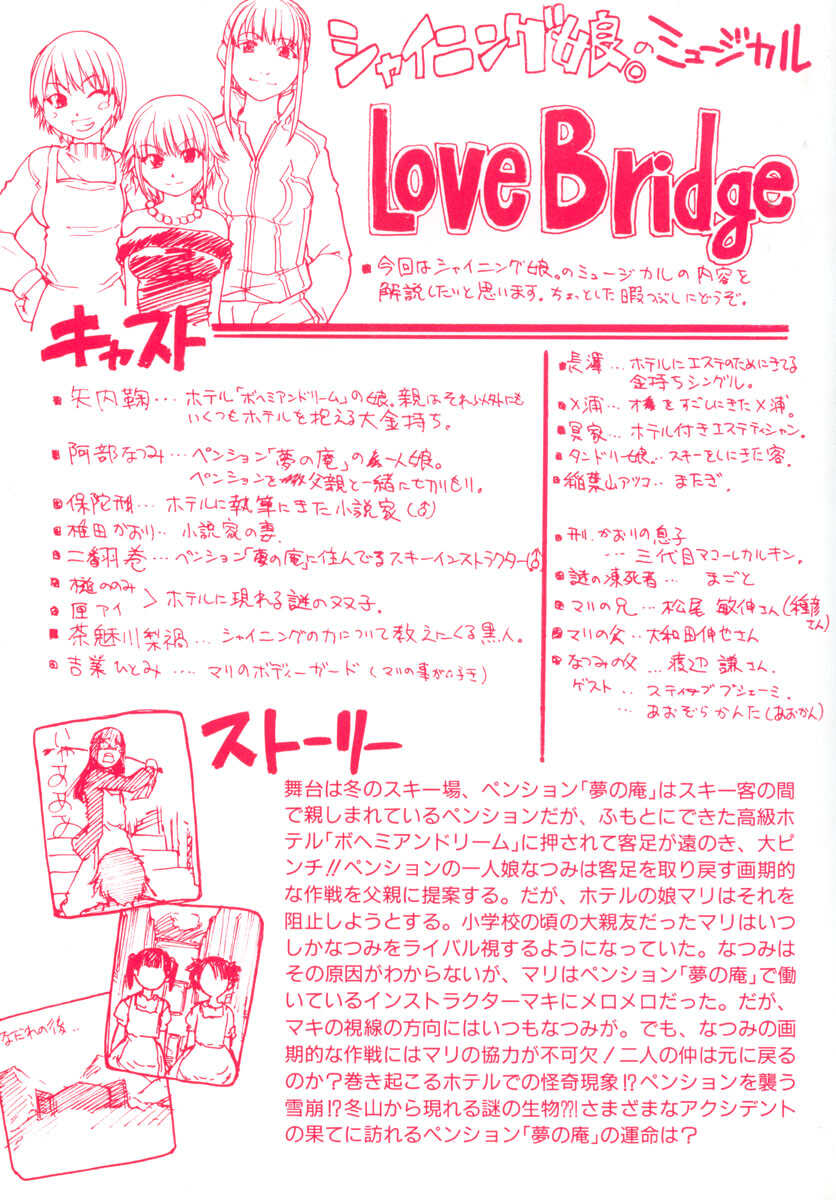 シャイニング娘。のミュージカル
Love Bridge
今回はシャイニング娘。のミュージカルの内容を
解説したいと思います。ちょっとした暇つぶしにどうぞ。
キャスト
矢内鞠…ホテル「ボヘミアンドリーム」の娘。親はそれ以外にも
いくつもホテルを抱える大金持ち。
阿部なつみ…ペンション「夢の庵」の一人娘。
ペンションを父親と一緒に切りもり。
保陀刑…ホテルに執筆にきた小説家(♂)
椎田かおり‥小説家の妻.
二翻巻…ペンション「夢の庵」に住んでるスキーインストラクター(♂)
槌ののみ
匣アイ
ホテルに現れる謎の双子.
茶魅川梨禍…シャイニングの力について教えにくる黒人。
吉業ひとみ…マリのボディーガード(マリの事が好き)
長澤…ホテルにエステのためにきてる
金持ちシングル。
メ浦…をすごしにきたメ浦。
具家…ホテル付きエステティシャン。
タンドリー娘。…スキーをしにきた客.
稲葉山アツコ…またぎ.
刑.かおりの息子
…三代目マコーレカルキン.
謎の凍死者…まごと
マリの兄…松尾敏伸さん(種彦さん)
マリの父…大和田伸也さん
なつみの父…渡辺謙さん
ゲスト‥スティーブブシェーミ.
…あおぞらかんた(あおかん)
いやぁぁぁ
なだれの後..
ストーリー
舞台は冬のスキー場、ペンション「夢の庵」はスキー客の間
で親しまれているペンションだが、ふもとにできた高級ホ
テル「ボヘミアンドリーム」に押されて客足が遠のき、大ピ
ンチ!!ペンションの一人娘なつみは客足を取り戻す画期的
な作戦を父親に提案する。だが、ホテルの娘マリはそれを
阻止しようとする。小学校の頃の大親友だったマリはいつ
しかなつみをライバル視するようになっていた。なつみは
その原因がわからないが、マリはペンション「夢の庵」で働
いているインストラクターマキにメロメロだった。だが、
マキの視線の方向にはいつもなつみが。でも、なつみの画
期的な作戦にはマリの協力が不可欠!二人の仲は元に戻る
のか?巻き起こるホテルでの怪奇現象!?ペンションを襲う
雪崩!?冬山から現れる謎の生物??!さまざまなアクシデント
の果てに訪れるペンション「夢の庵」の運命は?